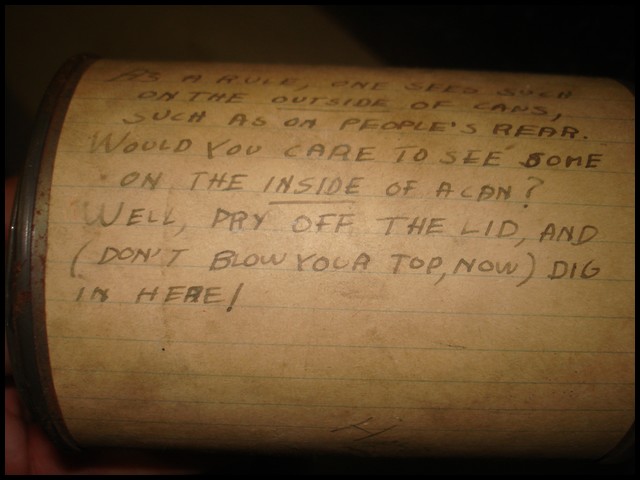 AS A RULE, ONE SEES SUCH
ON THE OUTSIDE OF CANS,
SUCH AS ON PEOPLE'S REAR.
WOULD YOU CARE TO SEE SOME
ON THE INSIDE OF A CAN?
WELL, PRY OFF THE LID, AND
(DON'T BLOW YOUR TOP, NOW) DIG
IN HERE!